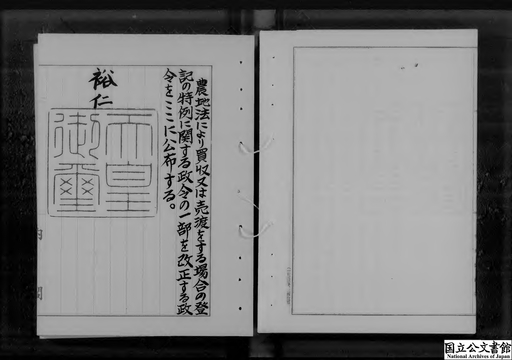 農地法により買収又は売渡をする場合の登
記の特例に関する政令の一部を改正する政
令をここに公布する。
裕仁
天皇
御璽
国立公文書館
National Archives of Japan